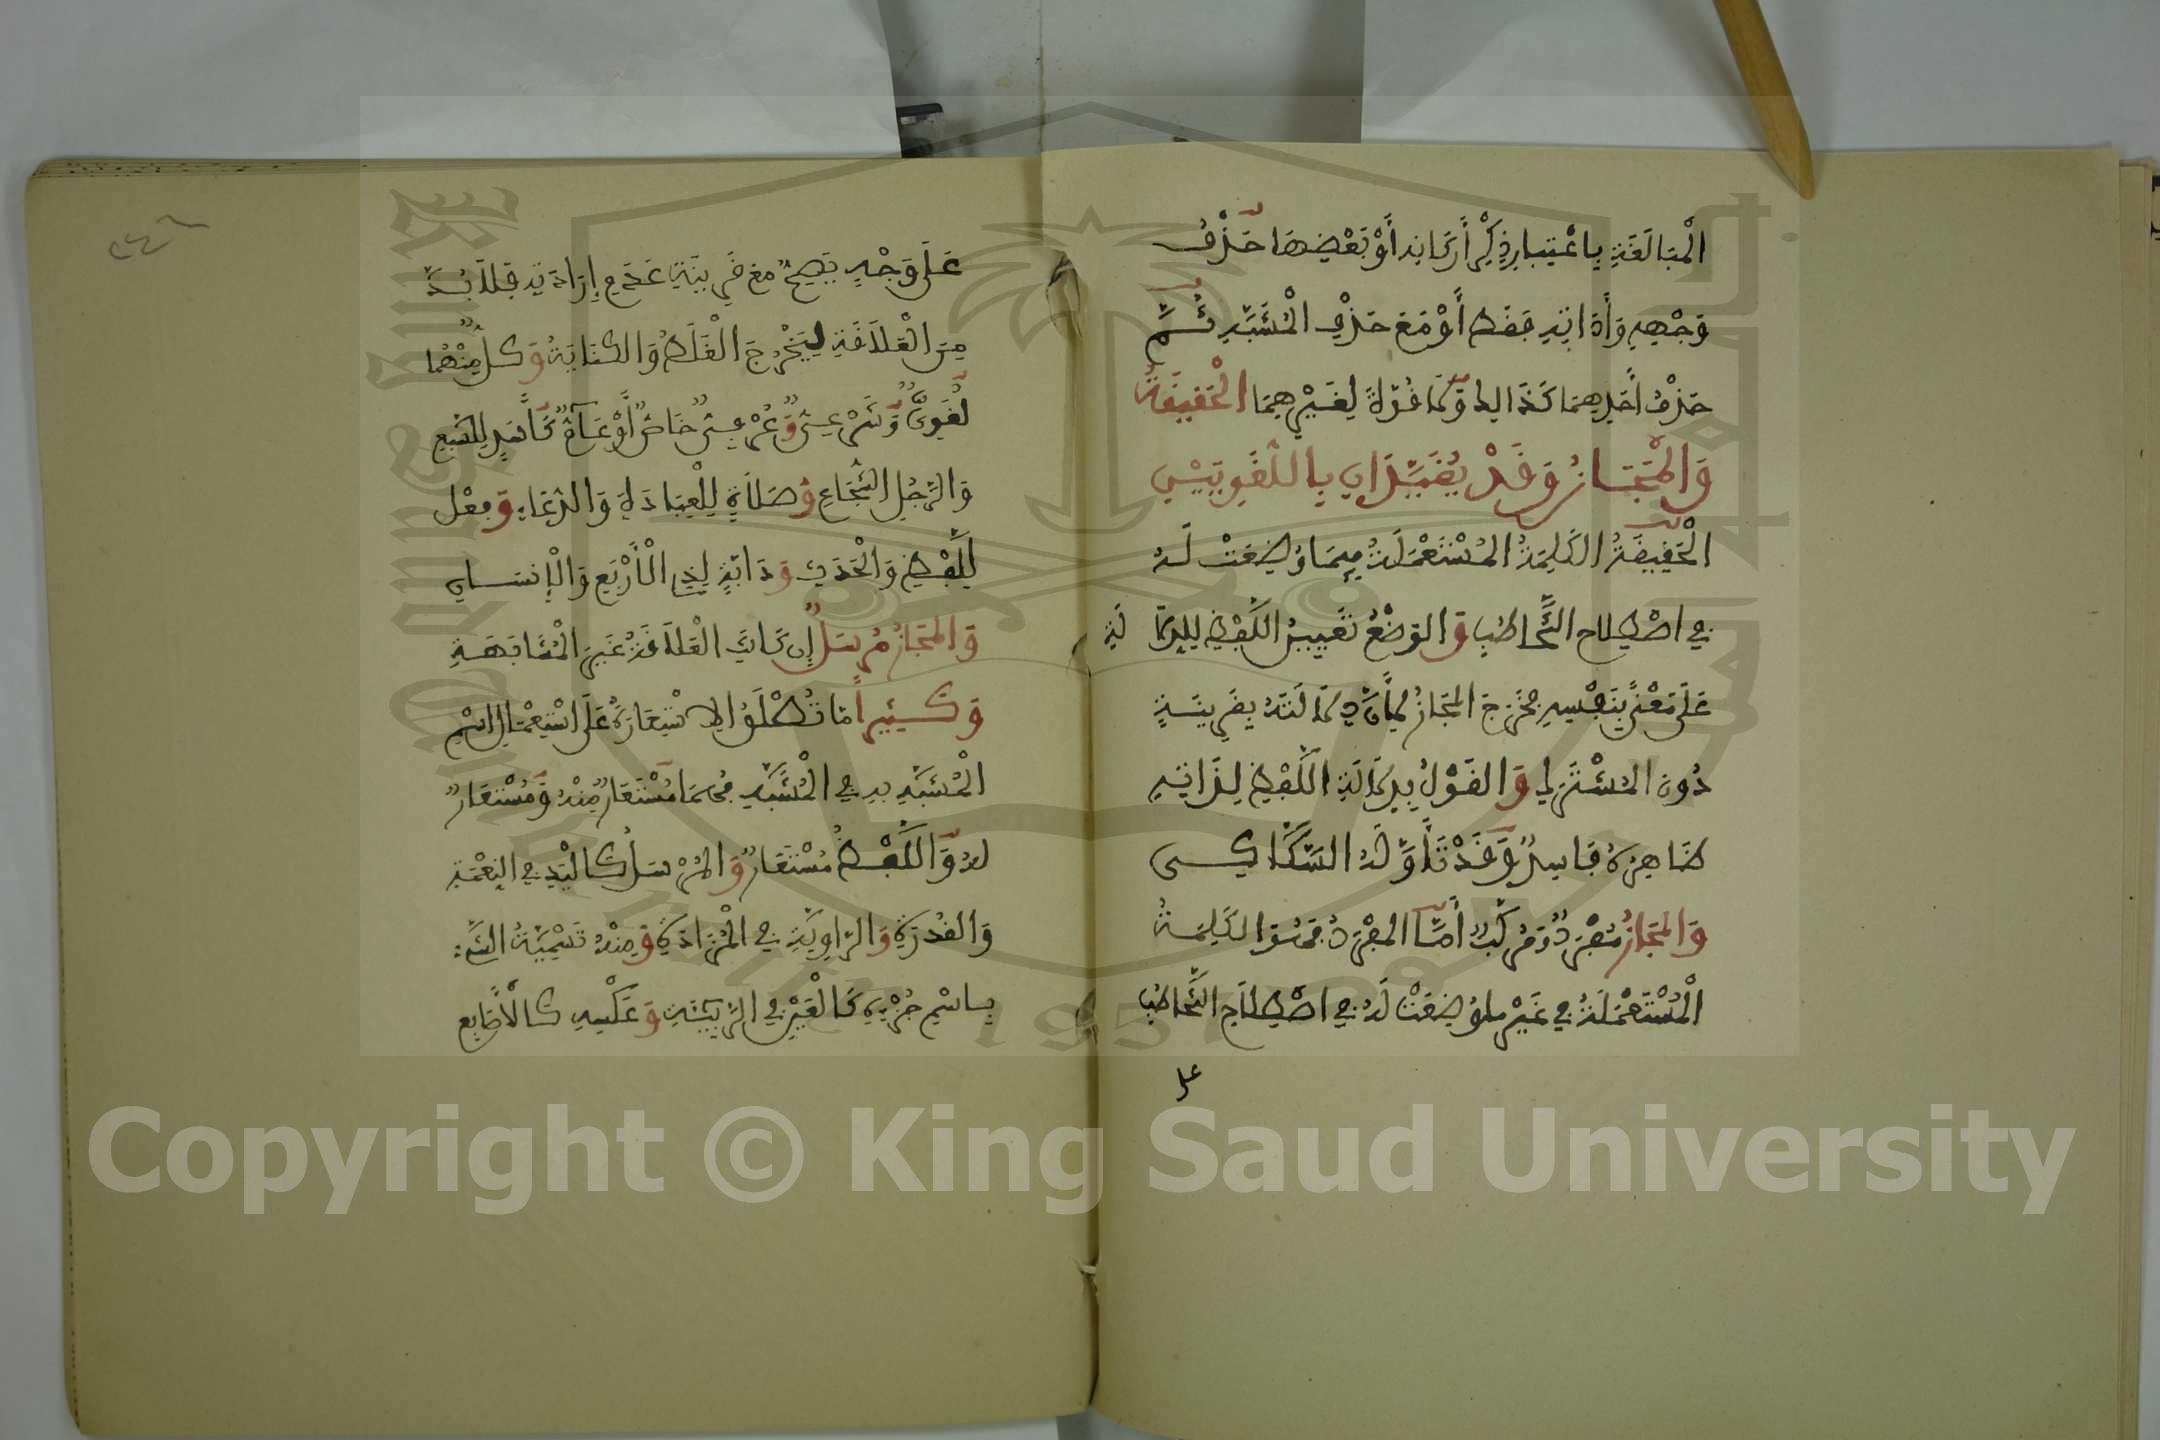 الْمُبَالَغَةِ بِاعْتِبَارِ ذِكْرِ أَرْكَانِهِ أَوْ بَعْضِهَا حَذْفُ
وَجْهِهِ وَأَدَاتِهِ فَقَط أَوْ مَعَ حَذْفِ الْمُشَبَّهِ ثُمَّ
حَذْفُ أَحَدِهِمَا كَذَالِكَ وَلَا قُوَّةَ لِغَيْرِهِمَا الْحَقِيقَةُ
وَالْمَجَازُ وَقَدْ يُقَيَّدَانِ بِاللُّغَوِيَّيْنِ
الْحَقِيقَةُ الْكَلِمَةُ الْمُسْتَعْمَلَةُ فِيمَا وُضِعَتْ لَهُ
فِي اصْطِلَاحِ التَّخَاطُبِ وَالْوَضْعُ تَعْيِينُ اللَّفْظِ لِلدَّلَا لَةِ
عَلَى مَعْنًى بِنَفْسِهِ فَخَرَجَ الْمَجَازُ لِأَنَّ دَلَالَتَهُ بِقَرِينَةٍ
دُونَ الْمُشْتَرَكِ وَالْقَوْلُ بِدَلَالَةِ اللَّفْظِ لِذَاتِهِ
ظَاهِرُهُ فَاسِدٌ وَقَدْ تَأَوَّلَهُ السَّكَّاكِي
وَالْمَجَازُ مُفْرَدٌ وَمُرَكَّبٌ أَمَّا الْمُفْرَدُ فَهُوَ الْكَلِمَةُ
الْمُسْتَعْمَلَةُ فِي غَيْرِ مَا وُضِعَتْ لَهُ فِي اصْطِلَاحِ التَّخَاطُبِ
على
عَلَى وَجْهٍ يَصِحُّ مَعَ قَرِينَةِ عَدَمِ إِرَادَتِهِ فَلَا بُدَّ
مِنَ الْعَلَاقَةِ لِيَخْرُجَ الْغَلَطُ وَالْكِنَايَةُ وَكُلٌّ مِنْهُمَا
لُغَوِيٌّ وَشَرْعِيٌّ وَعُرْفِيٌّ خَاصٌّ أَوْ عَامٌّ كَأَسَدٍ لِلسَّبُعِ
وَالرَّجُلِ الشُّجَاعِ وَصَلَاةٍ لِلْعِبَادَةِ وَالدُّعَاءِ وَفِعْلٍ
لِلَّفْظِ وَالْحَدَثِ وَدَابَّةٍ لِذِي الْأَرْبَعِ وَالْإِنْسَانِ
وَالْمَجَازُ مُرْسَلٌ إِنْ كَانَتِ الْعَلَاقَةُ غَيْرَ الْمُشَابَهَةِ
وَكَثِيراً مَا تُطْلَقُ الِاسْتِعَارَةُ عَلَى اسْتِعْمَالِ اسْمِ
الْمُشَبَّهِ بِهِ فِي الْمُشَبَّهِ فَهُمَا مُسْتَعَارٌ مِنْهُ وَمُسْتَعَارٌ
لَهُ وَاللَّفْظُ مُسْتَعَارٌ وَالْمُرْسَلُ كَالْيَدِ فِي النِّعْمَةِ
وَالْقُدْرَةِ وَالرَّاوِيَةِ فِي الْمَزَادَةِ وَمِنْهُ تَسْمِيَةُ الشَّيْءِ
بِاسْمِ جُزْئِهِ كَالْعَيْنِ فِي الرَّبِيئَةِ وَعَكْسِهِ كَالْأَصَابِعِ
Copyright © King Saud University
1957